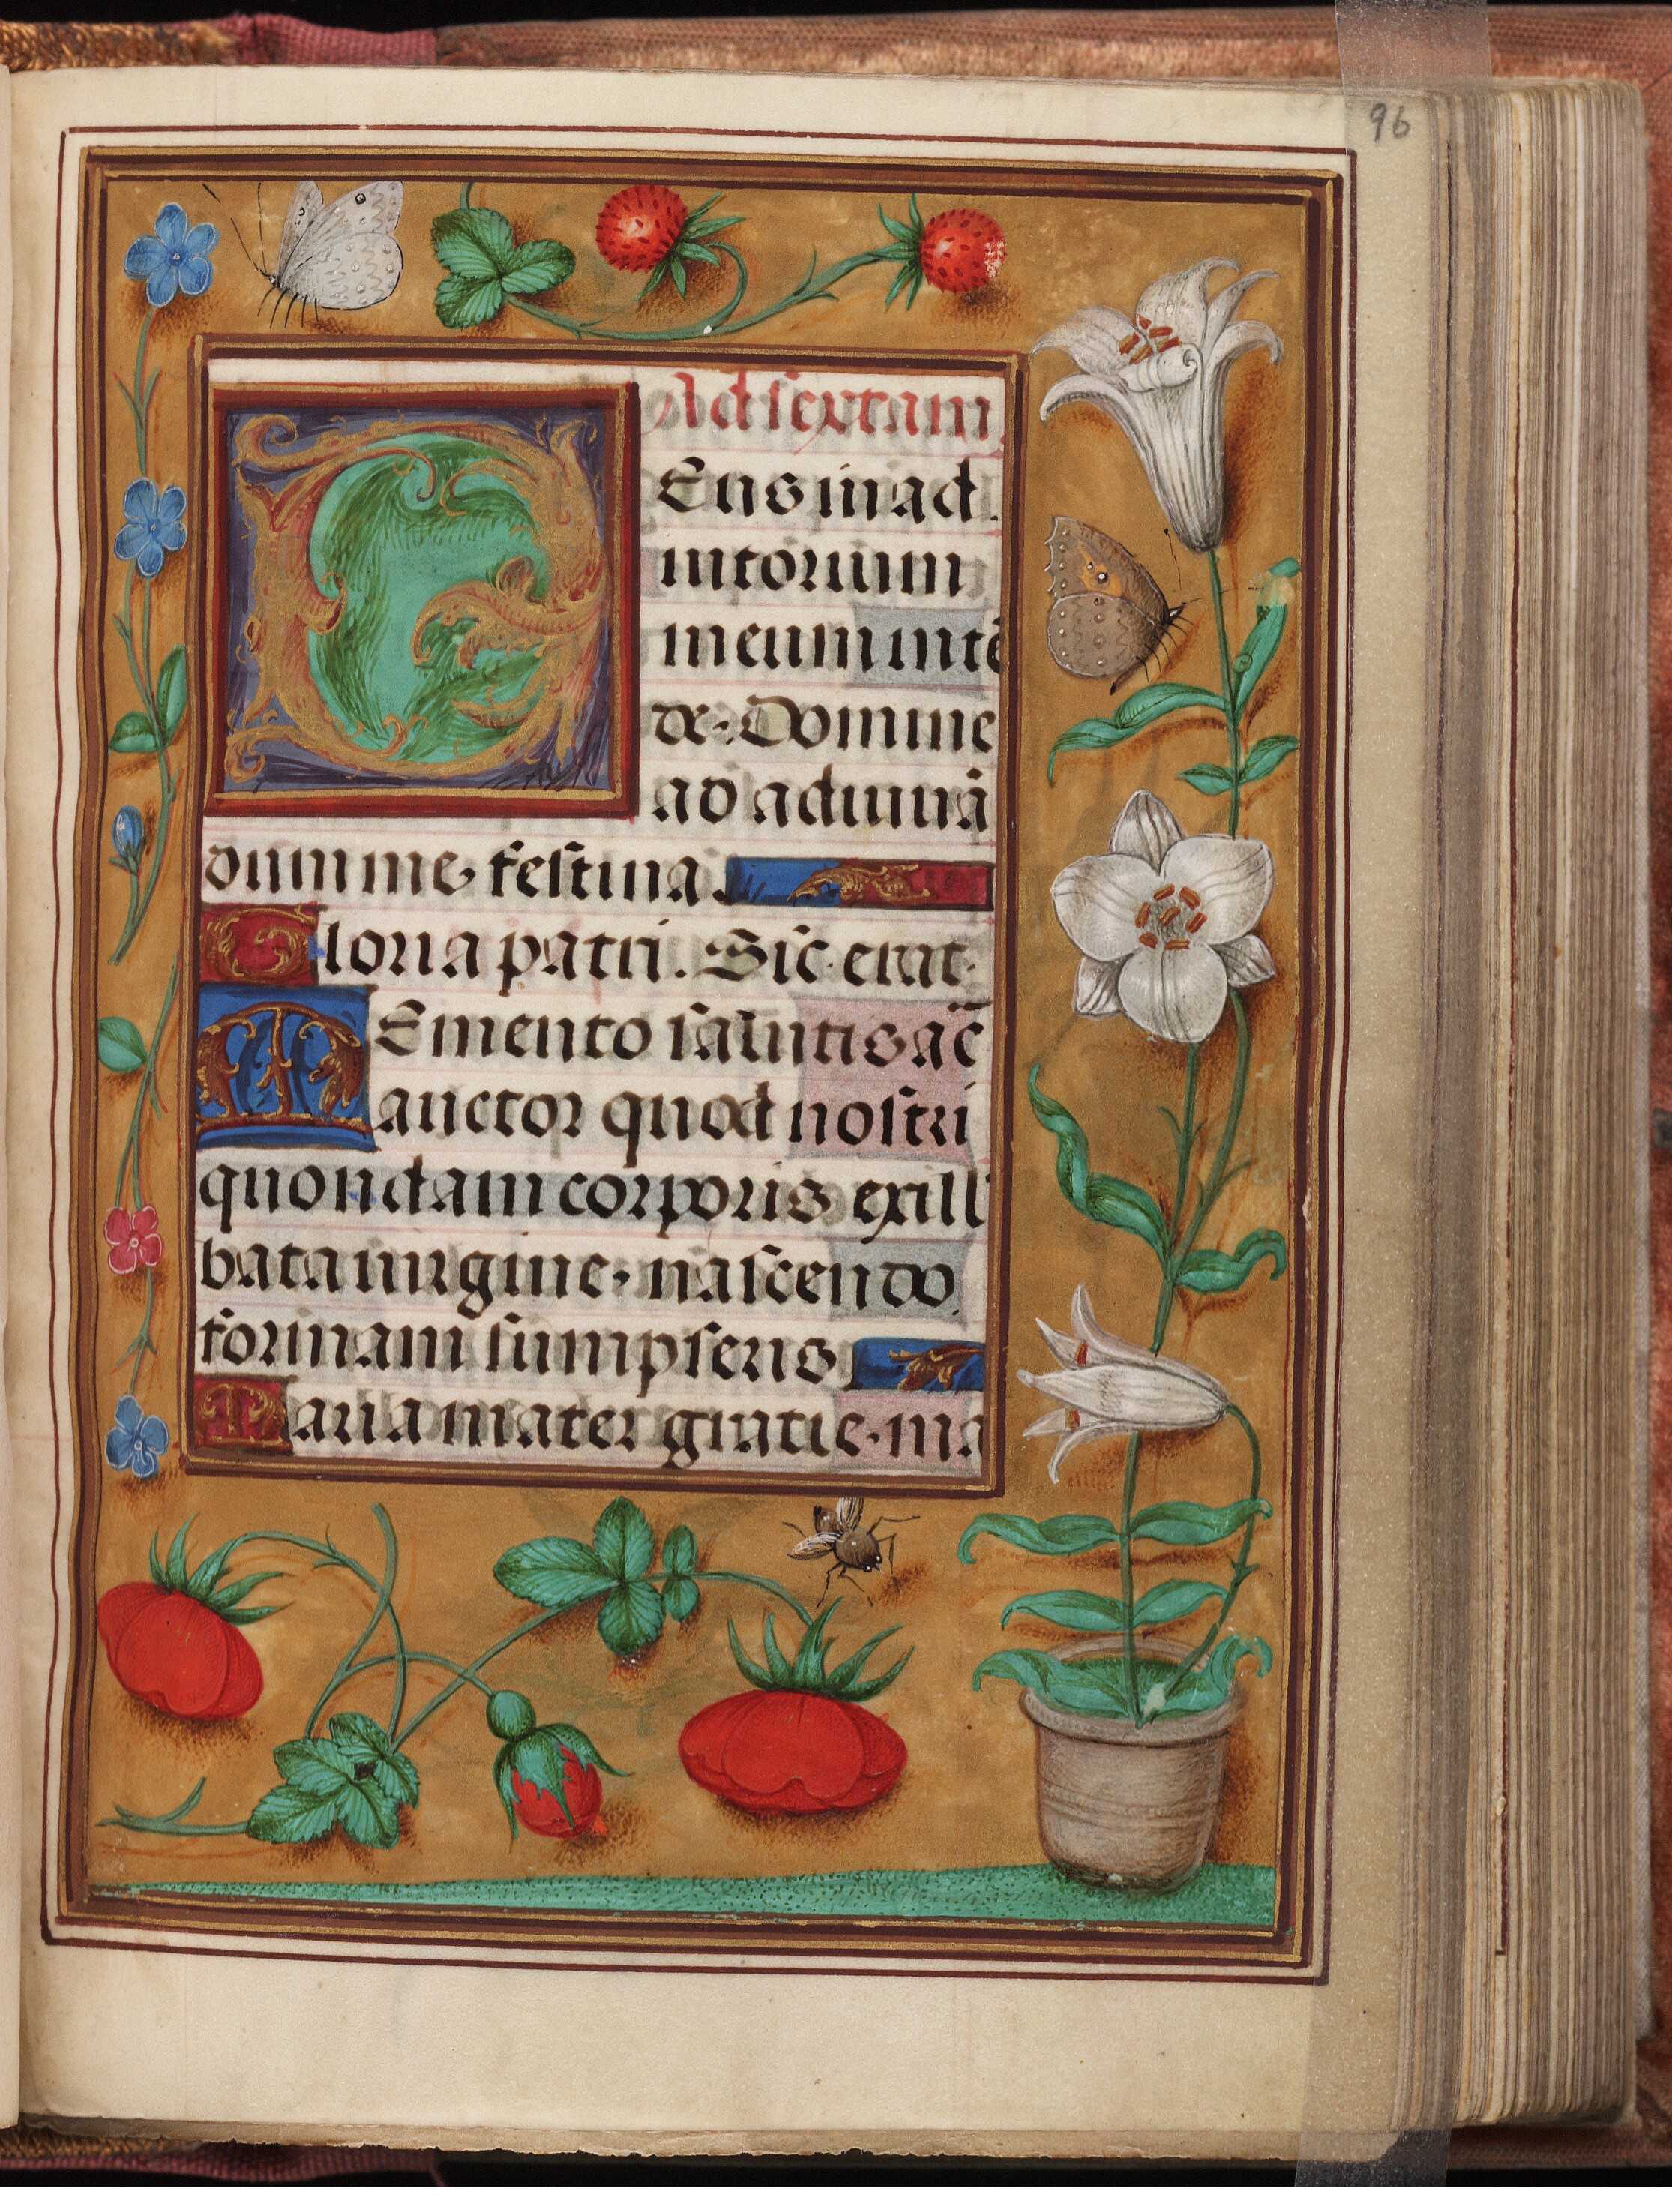 96
Ad sextam
DEus in ad
iutorium
meum intē
de. Domine
ad adiuuā
dum me festina.
Gloria patri. Sic erat.
MEmento salutis ac̄
auctor quod nostri
quondam corporis exilli
bata uirgine. nascendo
formam sumpseris.
Maria mater gratie. ma